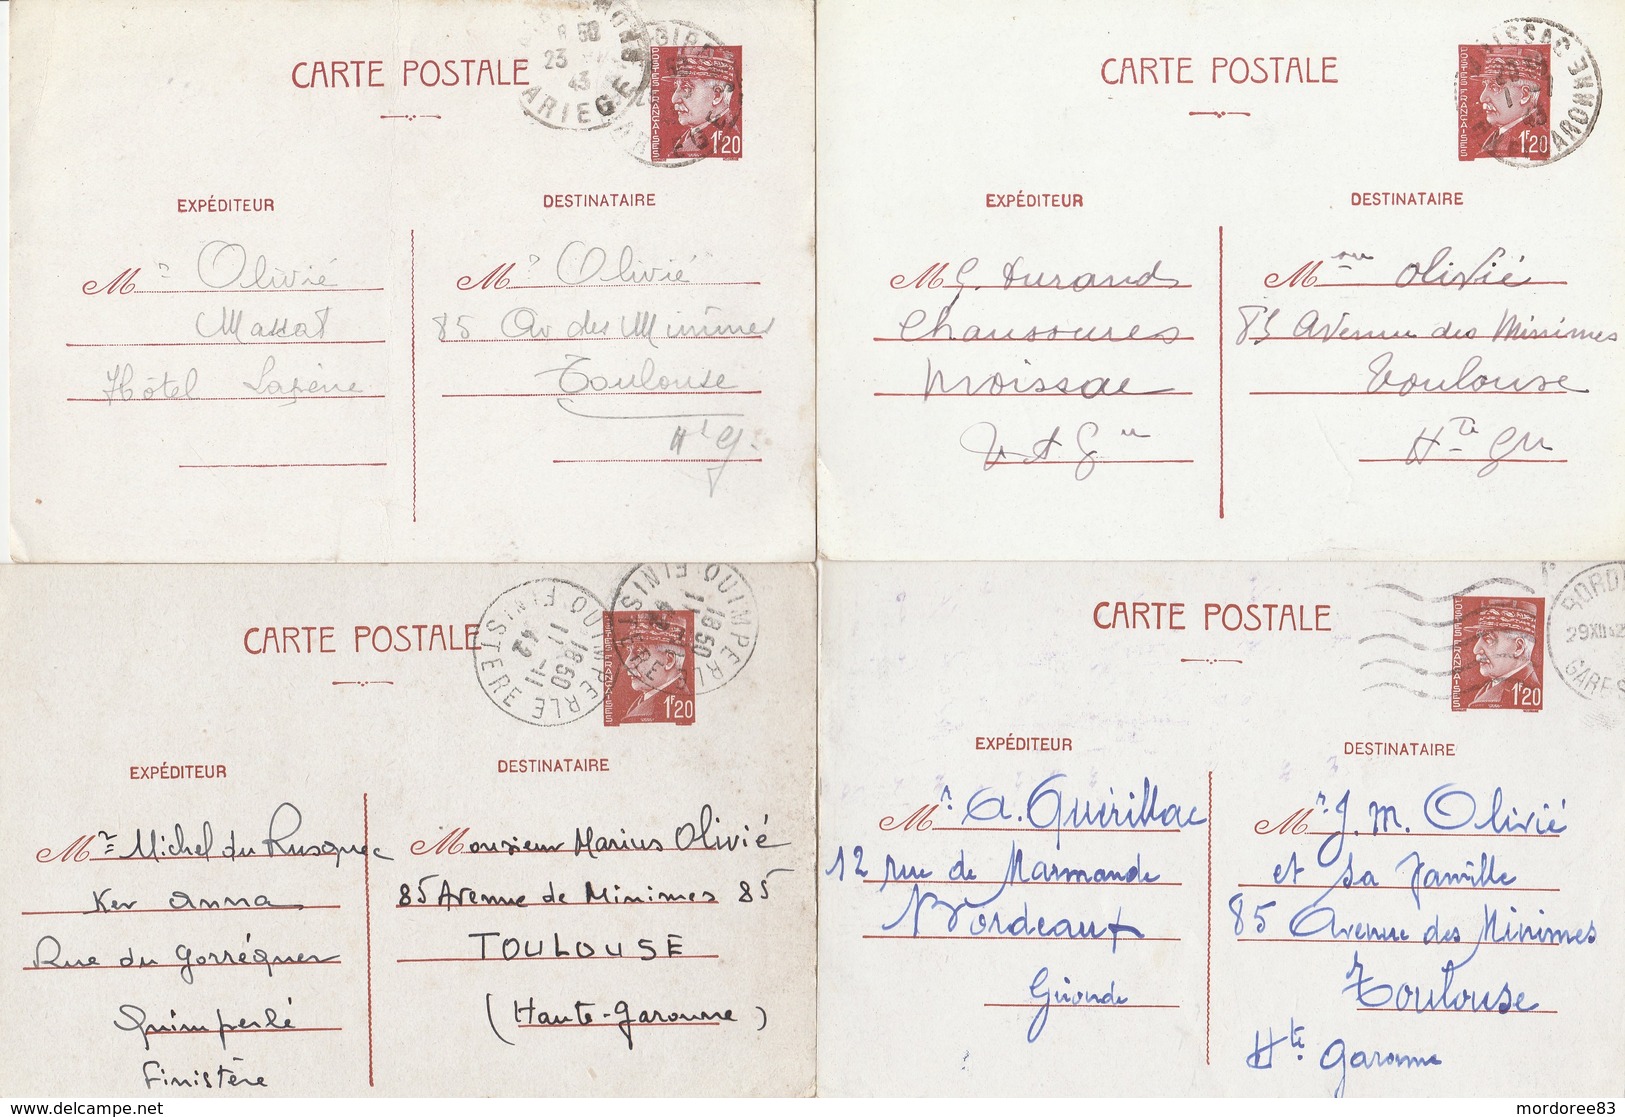 CARTE POSTALE
8 50
23
43
ARIEGE
POSTES FRANÇAISES
1F20
EXPÉDITEUR
DESTINATAIRE
Mr Olivié
Massat
Hôtel Lazène
Mr Olivié
85 Av des Minimes
Toulouse
Hte G.
CARTE POSTALE
MOISSAC
GARONNE
POSTES FRANÇAISES
1F20
EXPÉDITEUR
DESTINATAIRE
M G. Durand
Chaussures
Moissac
T et Gne
Mme Olivié
85 Avenue des Minimes
Toulouse
Hte Gne
CARTE POSTALE
QUIMPERLE
18 50
11-11
42
FINISTERE
QUIMPERLE
18 50
FINISTERE
POSTES FRANÇAISES
1F20
EXPÉDITEUR
DESTINATAIRE
Mr Michel du Rusquec
Ker Anna
Rue du Gorréquer
Quimperlé
Finistère
Monsieur Marius Olivié
85 Avenue de Minimes 85
TOULOUSE
(Haute-Garonne)
CARTE POSTALE
29 XII 42
GARE
POSTES FRANÇAISES
1F20
EXPÉDITEUR
DESTINATAIRE
Mr. A. Guérillac
12 rue de Marmande
Bordeaux
Gironde
Mr. J. M. Olivié
et sa famille
85 Avenue des Minimes
Toulouse
Hte Garonne
www.delcampe.net
mordoree83